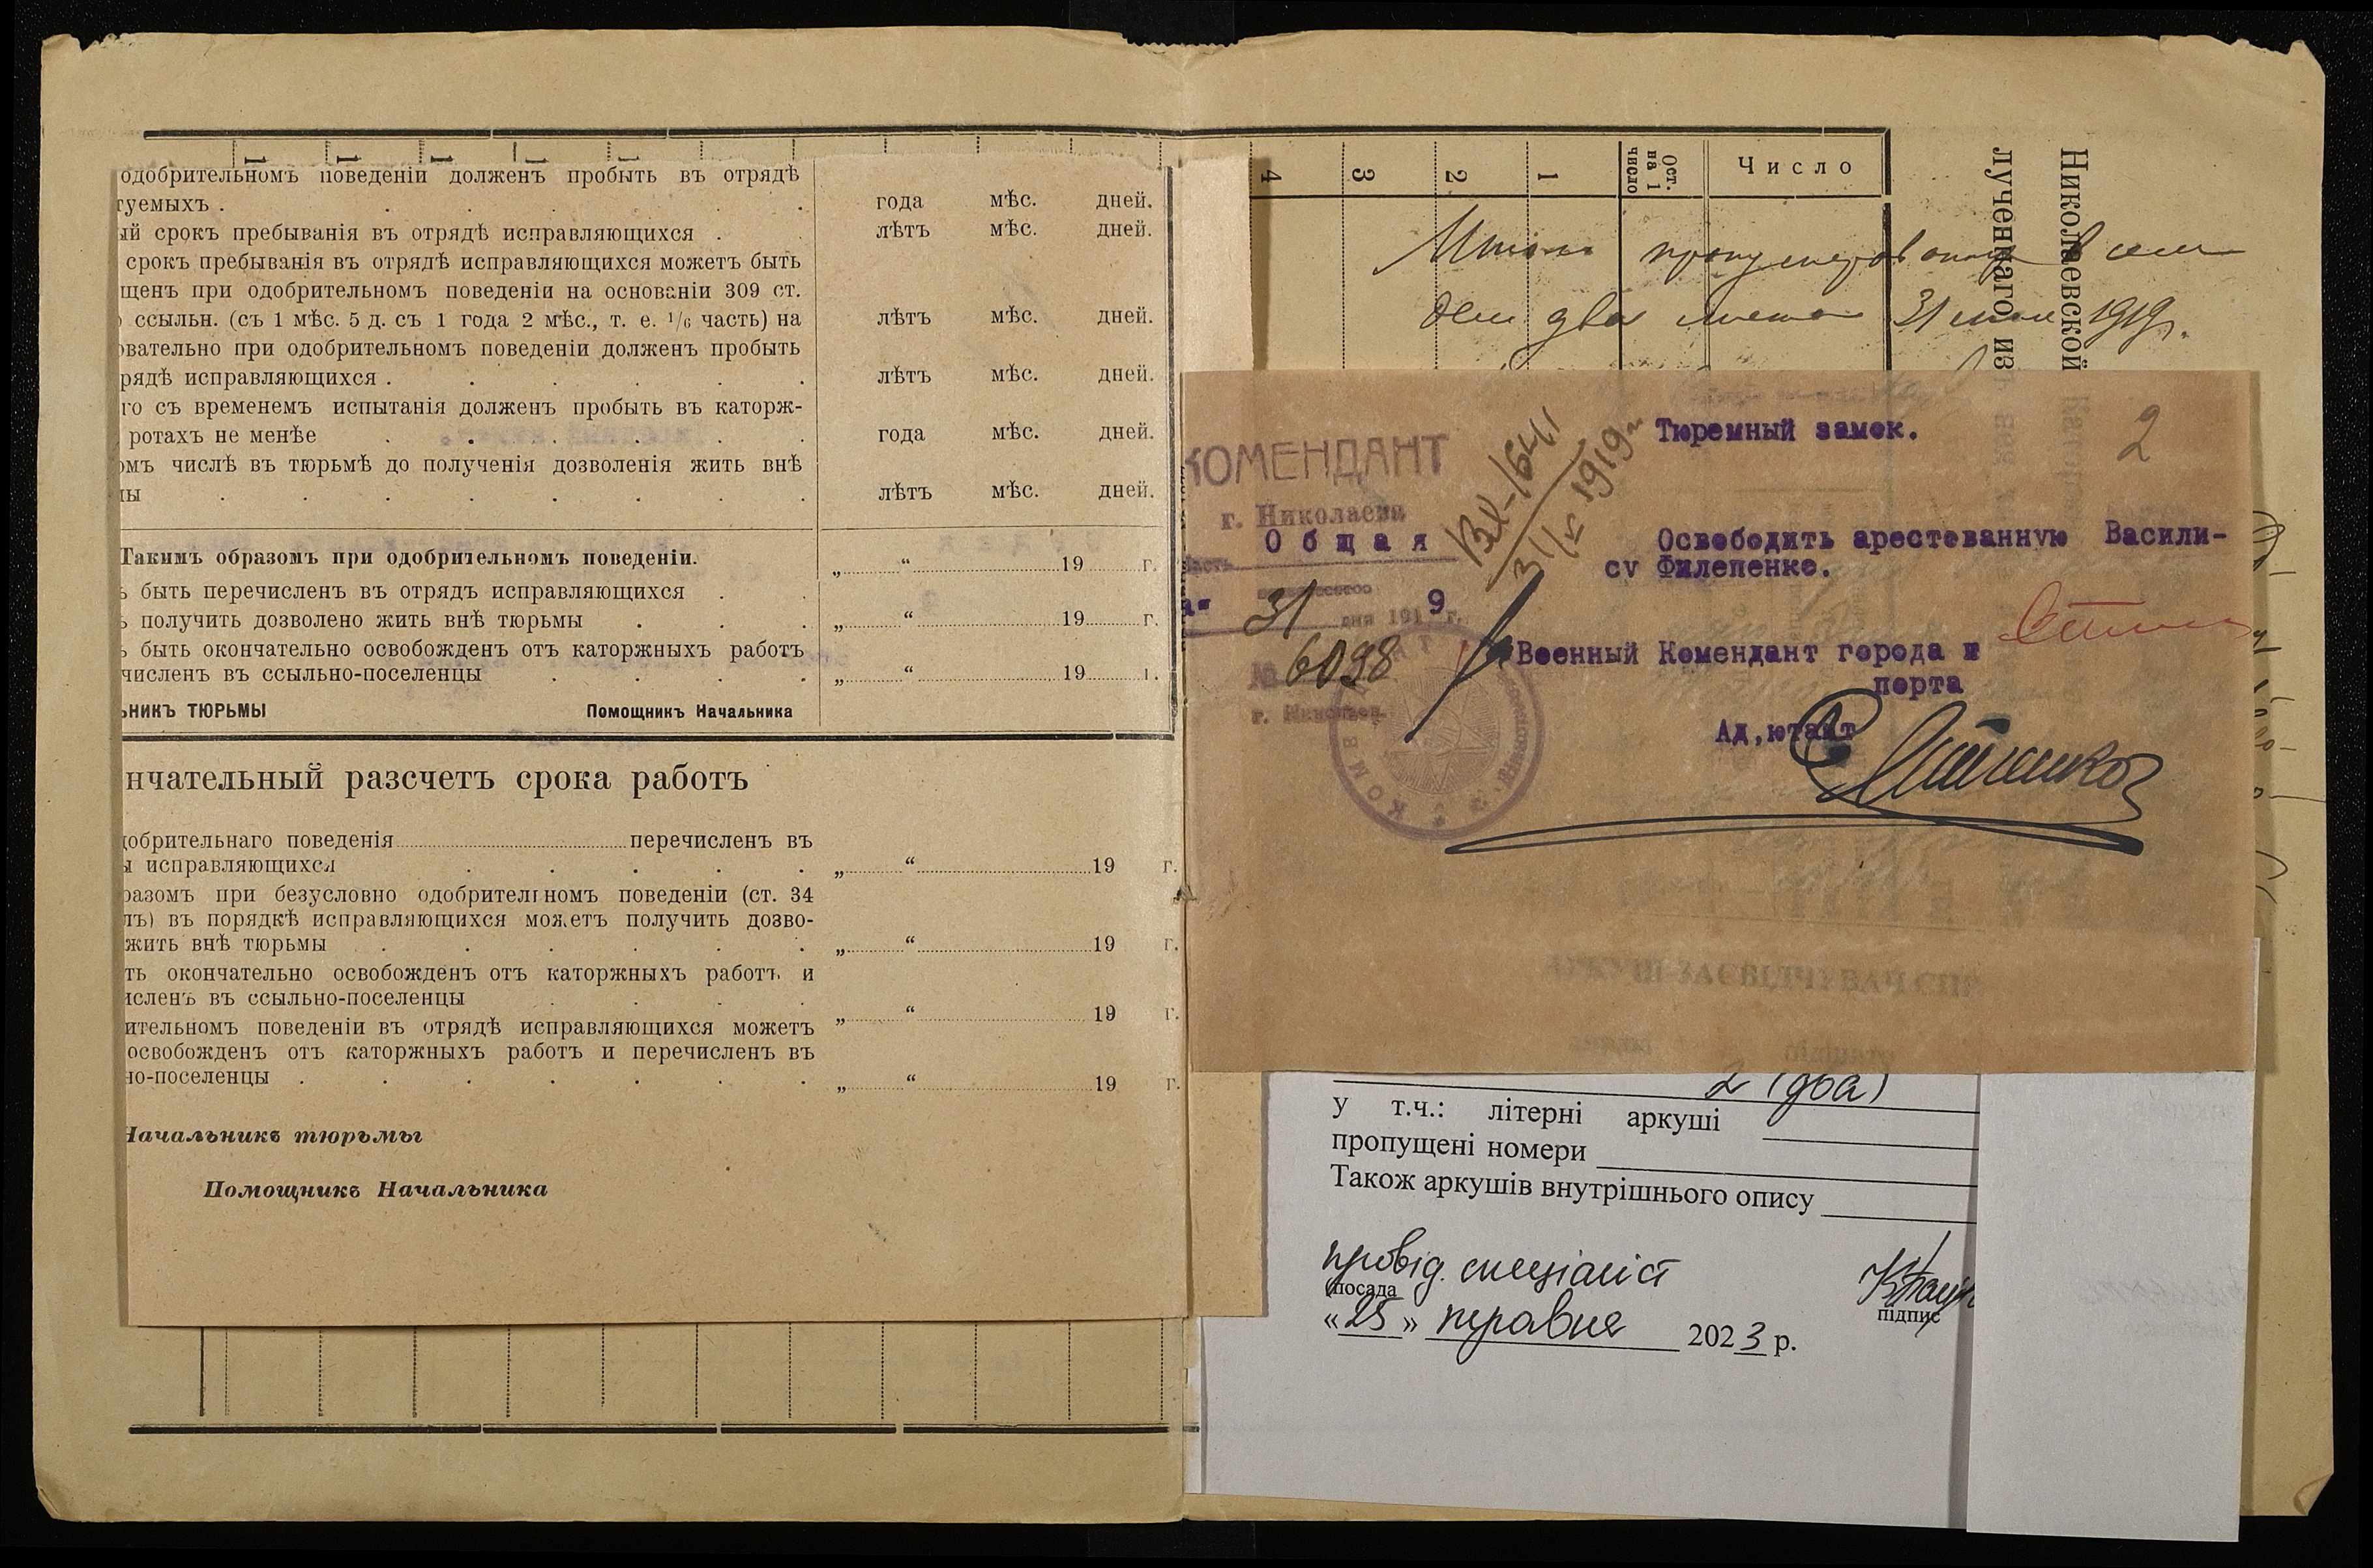 одобрительномъ поведеніи долженъ пробыть въ отрядѣ
туемыхъ . года мѣс. дней.
ый срокъ пребыванія въ отрядѣ исправляющихся . лѣтъ мѣс. дней.
срокъ пребыванія въ отрядѣ исправляющихся можетъ быть
щенъ при одобрительномъ поведеніи на основаніи 309 ст.
ссыльн. (съ 1 мѣс. 5 д. съ 1 года 2 мѣс., т. е. 1/6 часть) на лѣтъ мѣс. дней.
овательно при одобрительномъ поведеніи долженъ пробыть
рядѣ исправляющихся . лѣтъ мѣс. дней.
го съ временемъ испытанія долженъ пробыть въ каторж-
ротахъ не менѣе года мѣс. дней.
омъ числѣ въ тюрьмѣ до полученія дозволенія жить внѣ
ы лѣтъ мѣс. дней.
Такимъ образомъ при одобрительномъ поведеніи.
ъ быть перечисленъ въ отрядъ исправляющихся . „ “ 19 г.
ъ получить дозволено жить внѣ тюрьмы . „ “ 19 г.
ъ быть окончательно освобожденъ отъ каторжныхъ работъ
численъ въ ссыльно-поселенцы . „ “ 19 г.
ьникъ тюрьмы Помощникъ Начальника
нчательный разсчетъ срока работъ
добрительнаго поведенія перечисленъ въ
исправляющихся . „ “ 19 г.
разомъ при безусловно одобрительномъ поведеніи (ст. 34
лъ) въ порядкѣ исправляющихся можетъ получить дозво-
жить внѣ тюрьмы . „ “ 19 г.
ть окончательно освобожденъ отъ каторжныхъ работъ и
исленъ въ ссыльно-поселенцы . „ “ 19 г.
ительномъ поведеніи въ отрядѣ исправляющихся можетъ
освобожденъ отъ каторжныхъ работъ и перечисленъ въ
но-поселенцы . „ “ 19 г.
Начальникъ тюрьмы
Помощникъ Начальника
4 3 2 1 Ост. на 1 число Число
31 мая 1919г.
Николаевской
лученнаго из
2
КОМЕНДАНТ
г. Николаева
Общая
часть
31 дня 191 9 г.
№ 6098
г. Николаев.
Вх-1641
31/V 1919г
Тюремный замок.
Освободить арестованную Васили-
су Филепенко.
Военный Комендант города и
порта
Ад,ютант
2 (два)
у т.ч.: літерні аркуші
пропущені номери
Також аркушів внутрішнього опису
провід. спеціаліст
посада
підпис
«25» травня 2023 р.